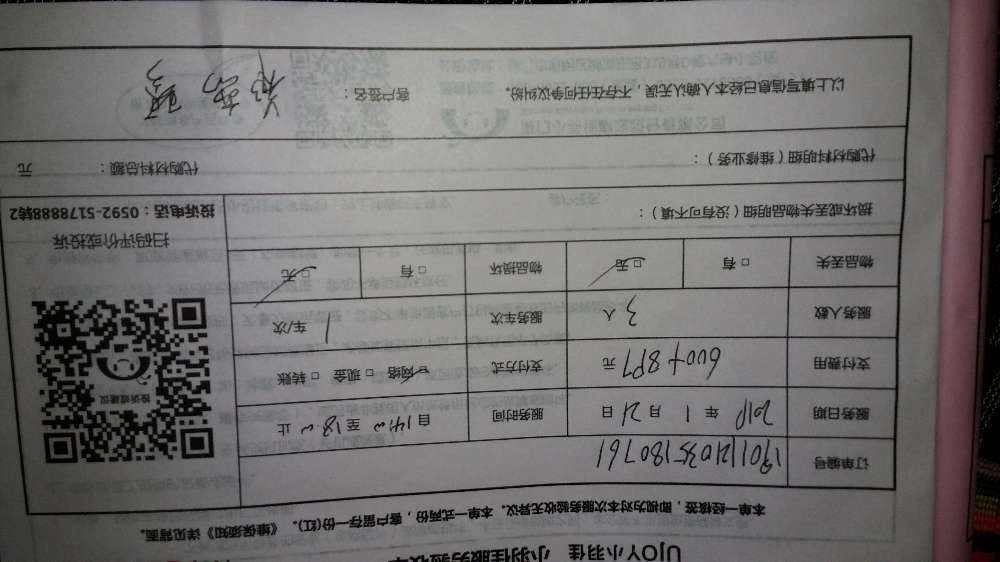 UJOY小羽佳 小羽佳服务验收单
本单一经核签，即视为对本次服务验收无异议。本单一式两份，客户留存一份(红)。《维保须知》详见背面。
订单编号 190112103518076 1
服务日期 2019 年 1 月 21 日 服务时间 自 14:00 至 18:00 止
支付费用 600+897 元 支付方式 网络 □ 现金 □ 转账
服务人数 3 人 服务车次 1 车/次
物品丢失 □ 有 □ 无 物品损坏 □ 有 □ 无
投诉或建议
扫码评价或投诉
投诉电话：0592-5178888转2
损坏或丢失物品明细（没有可不填）：
代购材料明细（维修业务）： 代购材料总额： 元
以上填写信息已经本人确认无误，不存在任何争议纠纷。 客户签名：